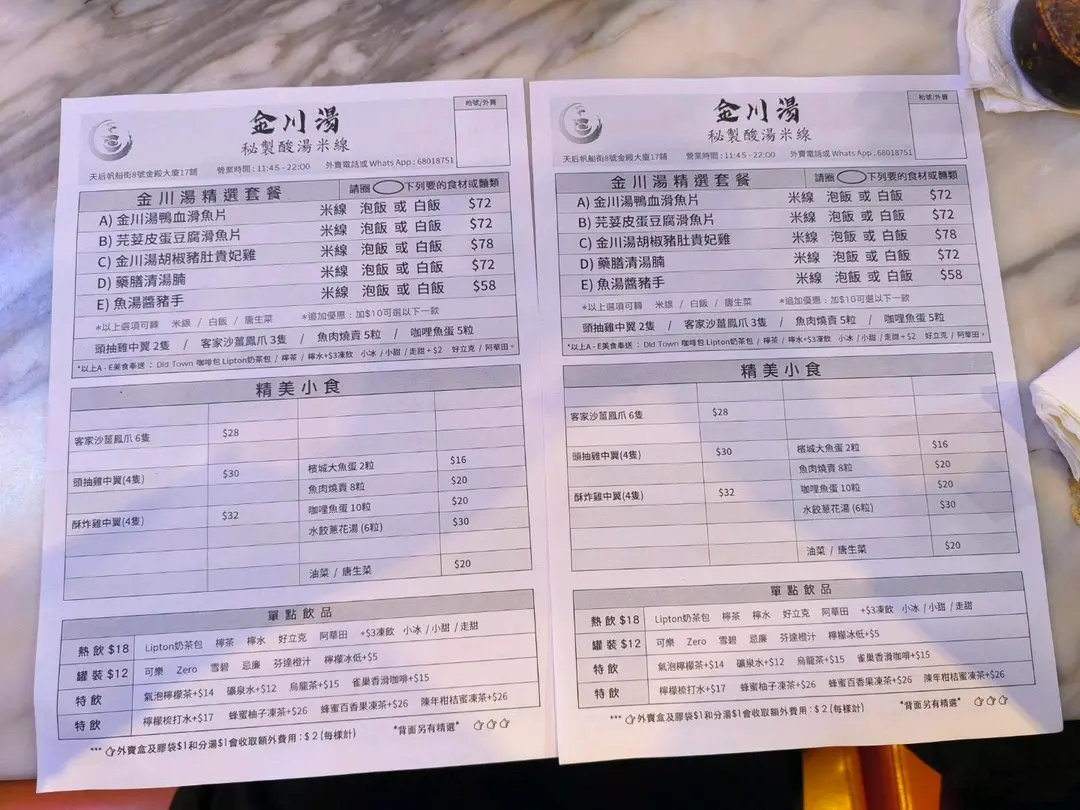 金川湯
秘製酸湯米線
枱號/外賣
天后帆船街8號金殿大廈17鋪 營業時間 : 11:45 - 22:00 外賣電話或 Whats App : 68018751
金川湯精選套餐 請圈 下列要的食材或麵類
A) 金川湯鴨血滑魚片 米線 泡飯 或 白飯 $72
B) 芫荽皮蛋豆腐滑魚片 米線 泡飯 或 白飯 $72
C) 金川湯胡椒豬肚貴妃雞 米線 泡飯 或 白飯 $78
D) 藥膳清湯腩 米線 泡飯 或 白飯 $72
E) 魚湯醬豬手 米線 泡飯 或 白飯 $58
*以上選項可轉 米線 / 白飯 / 唐生菜 *追加優惠 : 加$10可選以下一款
頭抽雞中翼 2隻 / 客家沙薑鳳爪 3隻 / 魚肉燒賣 5粒 / 咖哩魚蛋 5粒
*以上A - E美食奉送 : Old Town 咖啡包 Lipton奶茶包 / 檸茶 / 檸水+$3凍飲 小冰 / 小甜 / 走甜 + $2 好立克 / 阿華田。
精美小食
客家沙薑鳳爪 6隻 $28
頭抽雞中翼(4隻) $30 檳城大魚蛋 2粒 $16
魚肉燒賣 8粒 $20
酥炸雞中翼(4隻) $32 咖哩魚蛋 10粒 $20
水餃蔥花湯 (6粒) $30
油菜 / 唐生菜 $20
單點飲品
熱飲 $18 Lipton奶茶包 檸茶 檸水 好立克 阿華田 +$3凍飲 小冰 / 小甜 / 走甜
罐裝 $12 可樂 Zero 雪碧 忌廉 芬達橙汁 檸檬冰低+$5
特飲 氣泡檸檬茶+$14 礦泉水+$12 烏龍茶+$15 雀巢香滑咖啡+$15
特飲 檸檬梳打水+$17 蜂蜜柚子凍茶+$26 蜂蜜百香果凍茶+$26 陳年柑桔蜜凍茶+$26
*** 外賣盒及膠袋$1和分湯$1會收取額外費用 : $ 2 (每樣計) *背面另有精選*
金川湯
秘製酸湯米線
枱號/外賣
天后帆船街8號金殿大廈17鋪 營業時間 : 11:45 - 22:00 外賣電話或 Whats App : 68018751
金川湯精選套餐 請圈 下列要的食材或麵類
A) 金川湯鴨血滑魚片 米線 泡飯 或 白飯 $72
B) 芫荽皮蛋豆腐滑魚片 米線 泡飯 或 白飯 $72
C) 金川湯胡椒豬肚貴妃雞 米線 泡飯 或 白飯 $78
D) 藥膳清湯腩 米線 泡飯 或 白飯 $72
E) 魚湯醬豬手 米線 泡飯 或 白飯 $58
*以上選項可轉 米線 / 白飯 / 唐生菜 *追加優惠 : 加$10可選以下一款
頭抽雞中翼 2隻 / 客家沙薑鳳爪 3隻 / 魚肉燒賣 5粒 / 咖哩魚蛋 5粒
*以上A - E美食奉送 : Old Town 咖啡包 Lipton奶茶包 / 檸茶 / 檸水+$3凍飲 小冰 / 小甜 / 走甜 + $2 好立克 / 阿華田。
精美小食
客家沙薑鳳爪 6隻 $28
頭抽雞中翼(4隻) $30 檳城大魚蛋 2粒 $16
魚肉燒賣 8粒 $20
酥炸雞中翼(4隻) $32 咖哩魚蛋 10粒 $20
水餃蔥花湯 (6粒) $30
油菜 / 唐生菜 $20
單點飲品
熱飲 $18 Lipton奶茶包 檸茶 檸水 好立克 阿華田 +$3凍飲 小冰 / 小甜 / 走甜
罐裝 $12 可樂 Zero 雪碧 忌廉 芬達橙汁 檸檬冰低+$5
特飲 氣泡檸檬茶+$14 礦泉水+$12 烏龍茶+$15 雀巢香滑咖啡+$15
特飲 檸檬梳打水+$17 蜂蜜柚子凍茶+$26 蜂蜜百香果凍茶+$26 陳年柑桔蜜凍茶+$26
*** 外賣盒及膠袋$1和分湯$1會收取額外費用 : $ 2 (每樣計) *背面另有精選*